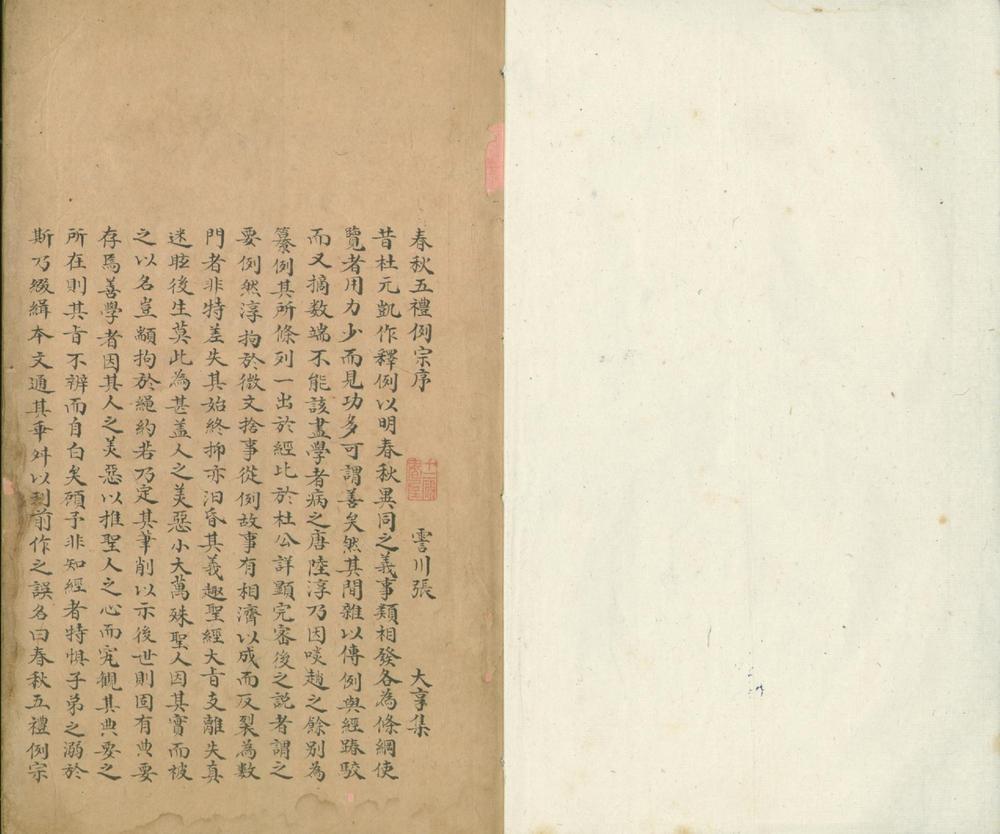 春秋五禮例宗序 霅川張 大亨集
昔杜元凱作釋例以明春秋異同之義事類相發各為條綱使
覽者用力少而見功多可謂善矣然其間雜以傳例與經踳駁
而又摘数端不能該盡學者病之唐陸淳乃因啖趙之餘別為
纂例其所條列一出於經比於杜公詳顯完審後之説者謂之
要例然淳拘於微文捨事從例故事有相濟以成而反裂為數
門者非特差失其始終抑亦汩昏其義趣聖經大旨支離失真
迷眩後生莫此為甚盖人之美惡小大萬殊聖人因其實而被
之以名豈顓拘於繩約若乃定其筆削以示後世則固有典要
存焉善學者因其人之美惡以推聖人之心而究觀其典要之
所在則其旨不辨而自白矣顧予非知經者特惧子弟之溺於
斯乃綴緝本文通其乖舛以刊前作之誤名曰春秋五禮例宗